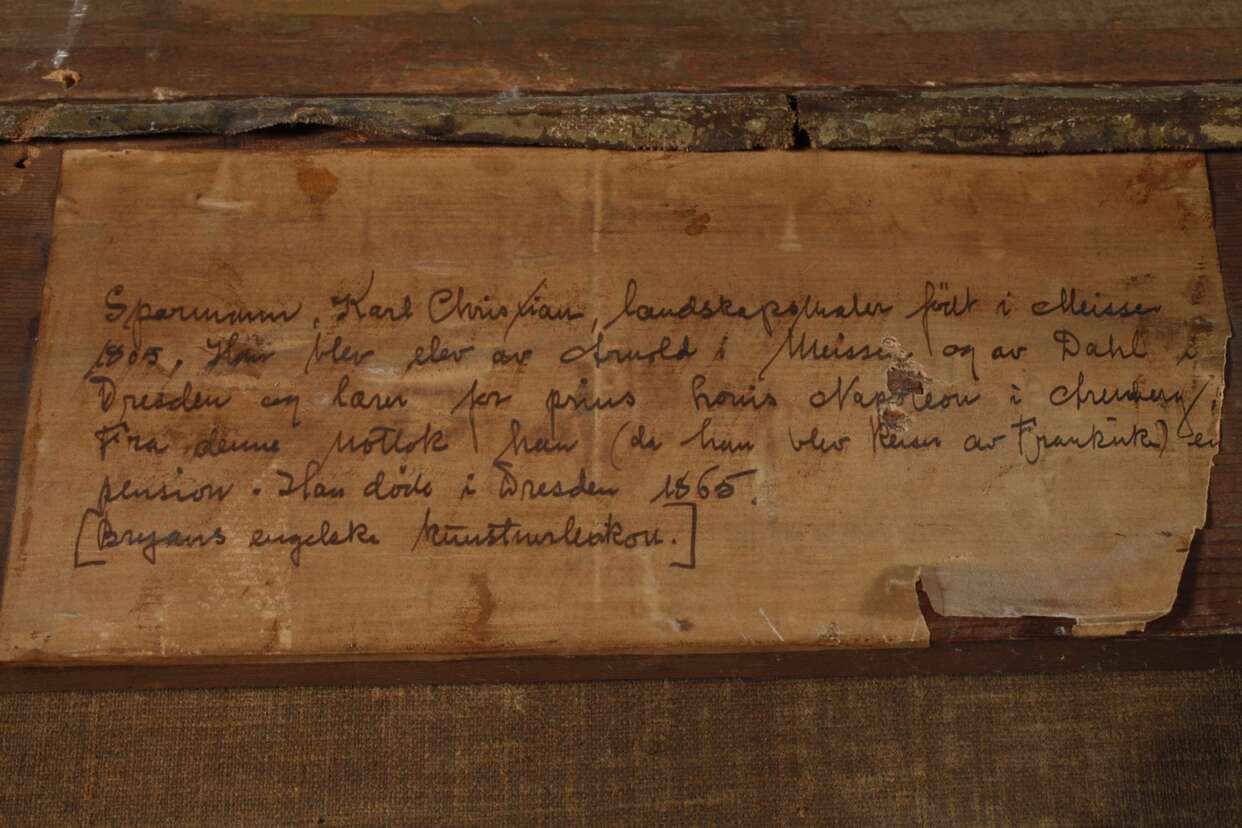 Sparmann, Karl Christian, landskapsmaler født i Meissen
1805, Han blev elev av Arnold i Meissen, og av Dahl i
Dresden og lærer for prins Louis Napoleon i Arenberg
Fra denne mottok han (da han blev Keiser av Frankrike) en
pension. Han døde i Dresden 1865.
[Bryans engelske kunstnerlexikon.]